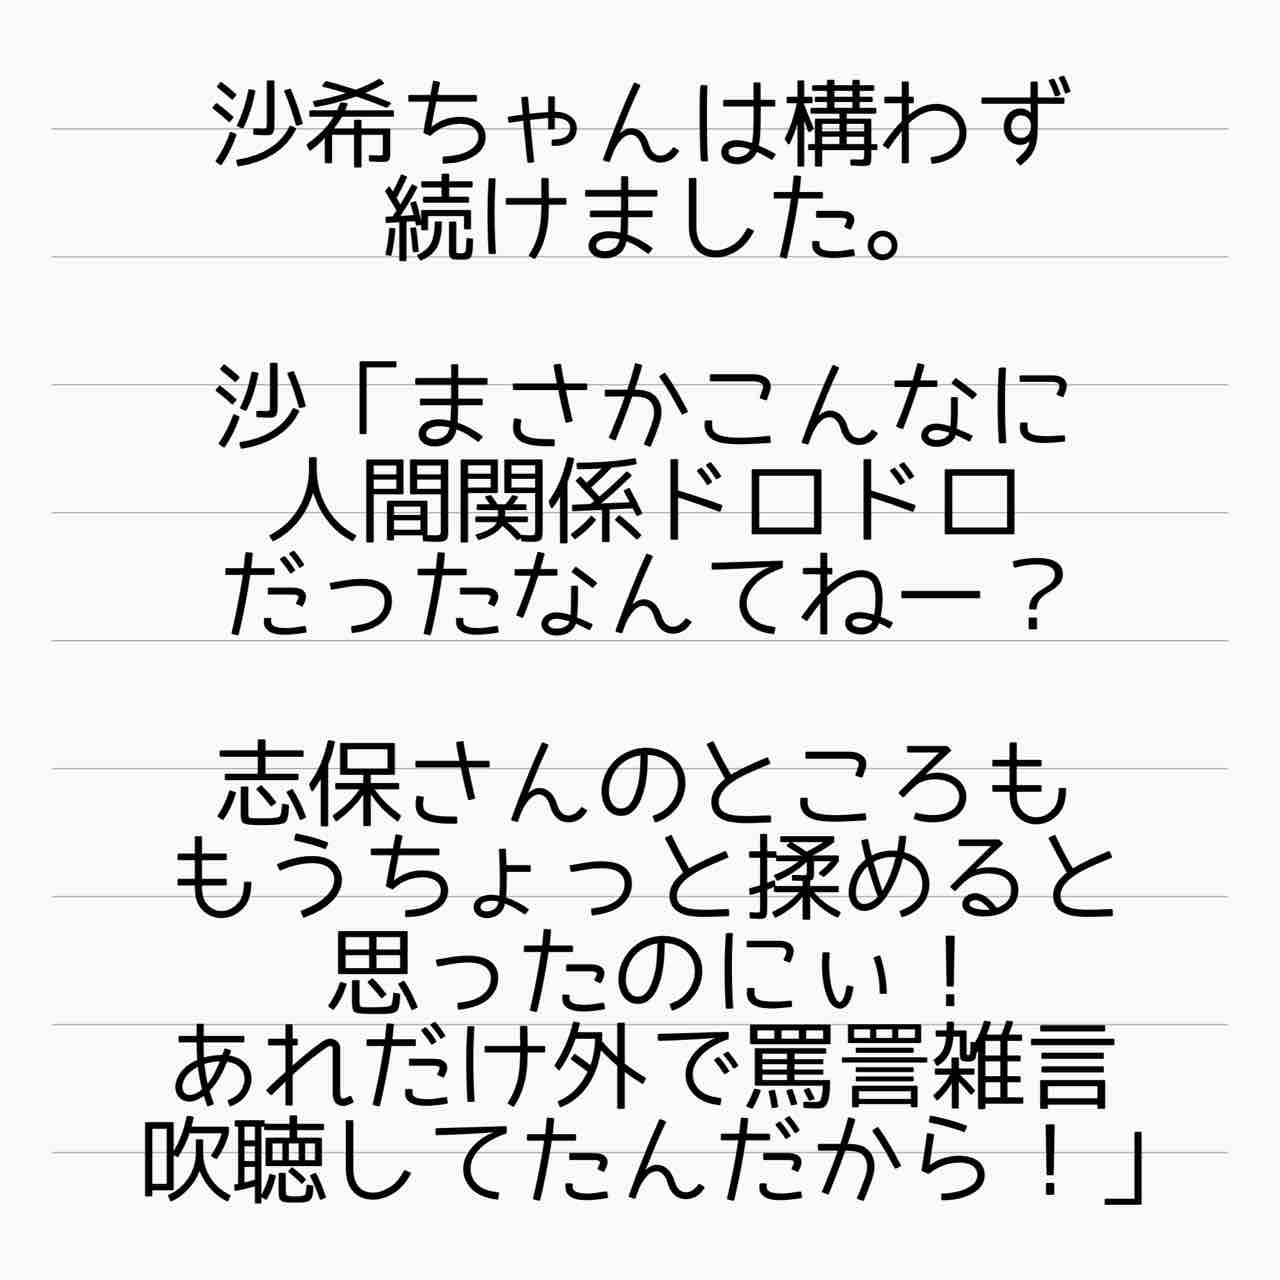 沙希ちゃんは構わず
続けました。
沙「まさかこんなに
人間関係ドロドロ
だったなんてねー？
志保さんのところも
もうちょっと揉めると
思ったのにぃ！
あれだけ外で罵詈雑言
吹聴してたんだから！」